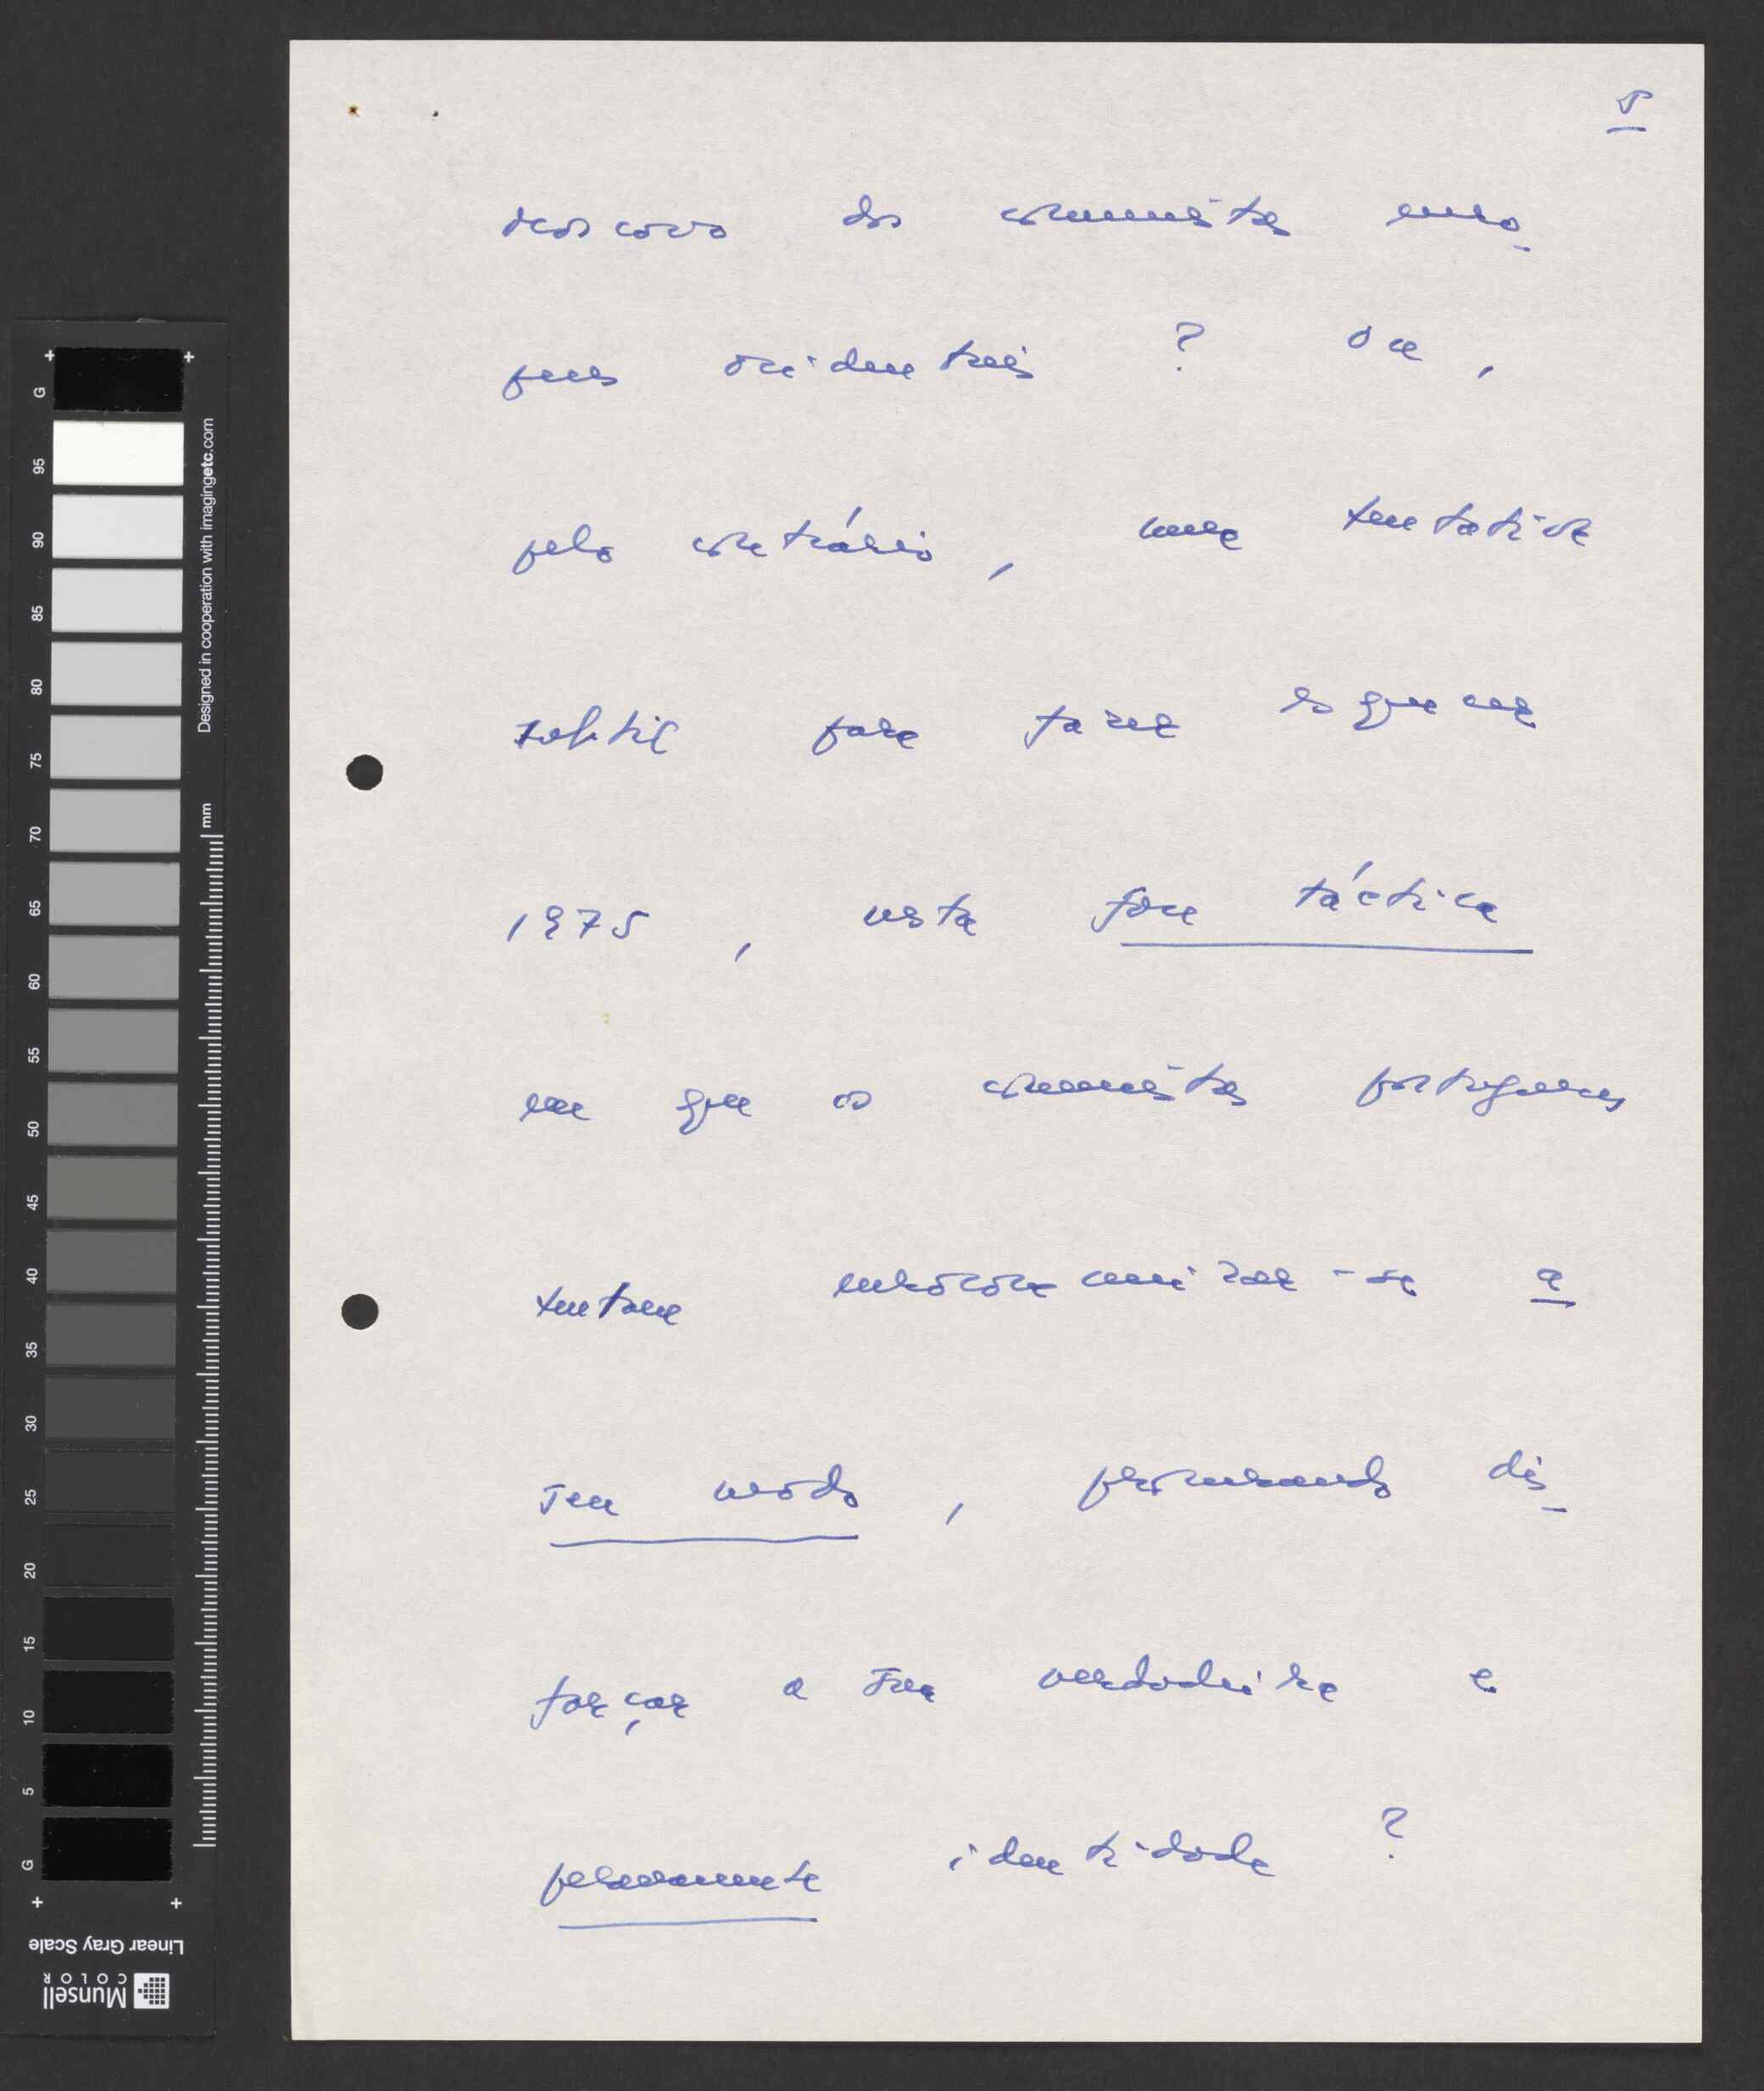 5
Moscovo dos comunistas euro-
peus ocidentais ? Ou ,
pelo contrário , uma tentativa
subtil para fazer esquecer
1975 , nesta fase táctica
em que os comunistas portugueses
tentam eurocomunizar-se a
seu modo , procurando dis-
farçar a sua verdadeira e
permanente identidade ?
G
95
90
85
80
75
70
65
60
55
50
45
40
35
30
25
20
15
10
5
G
mm
Designed in cooperation with imagingetc.com
Linear Gray Scale
Munsell
COLOR